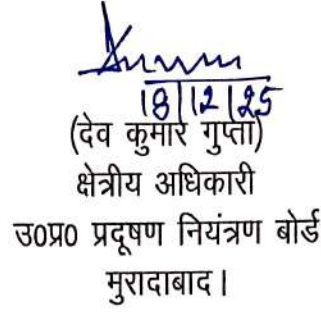 18/12/25
(देव कुमार गुप्ता)
क्षेत्रीय अधिकारी
उ०प्र० प्रदूषण नियंत्रण बोर्ड
मुरादाबाद।